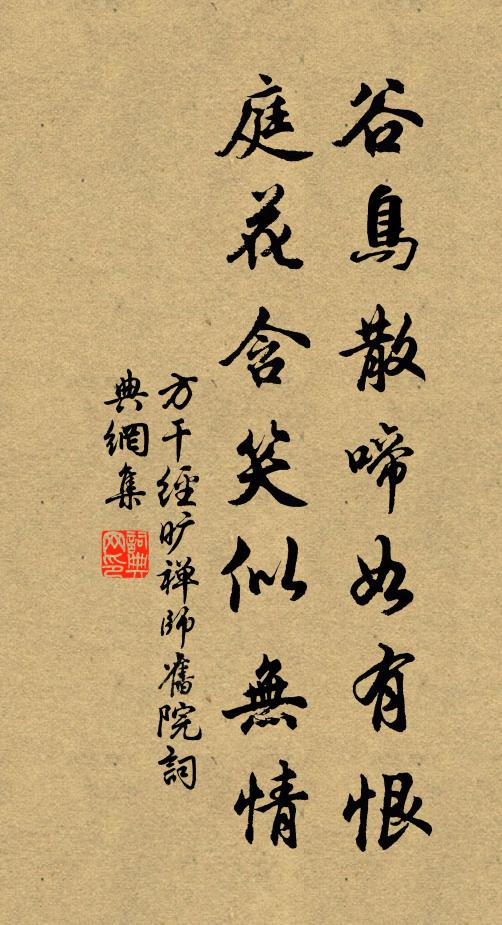 谷鳥散啼如有恨
庭花含笑似無情
方干經旷禅師舊院詞
典網集
詞典
网印